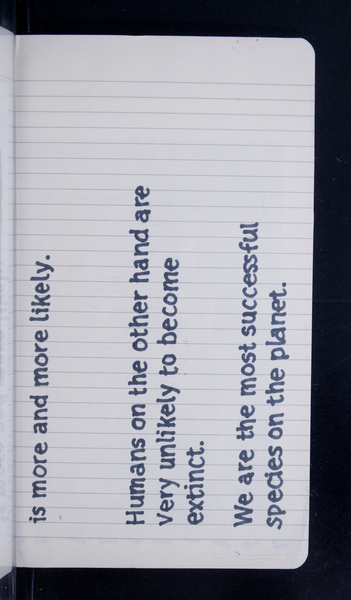 is more and more likely.
Humans on the other hand are
very unlikely to become
extinct.
We are the most successful
species on the planet.